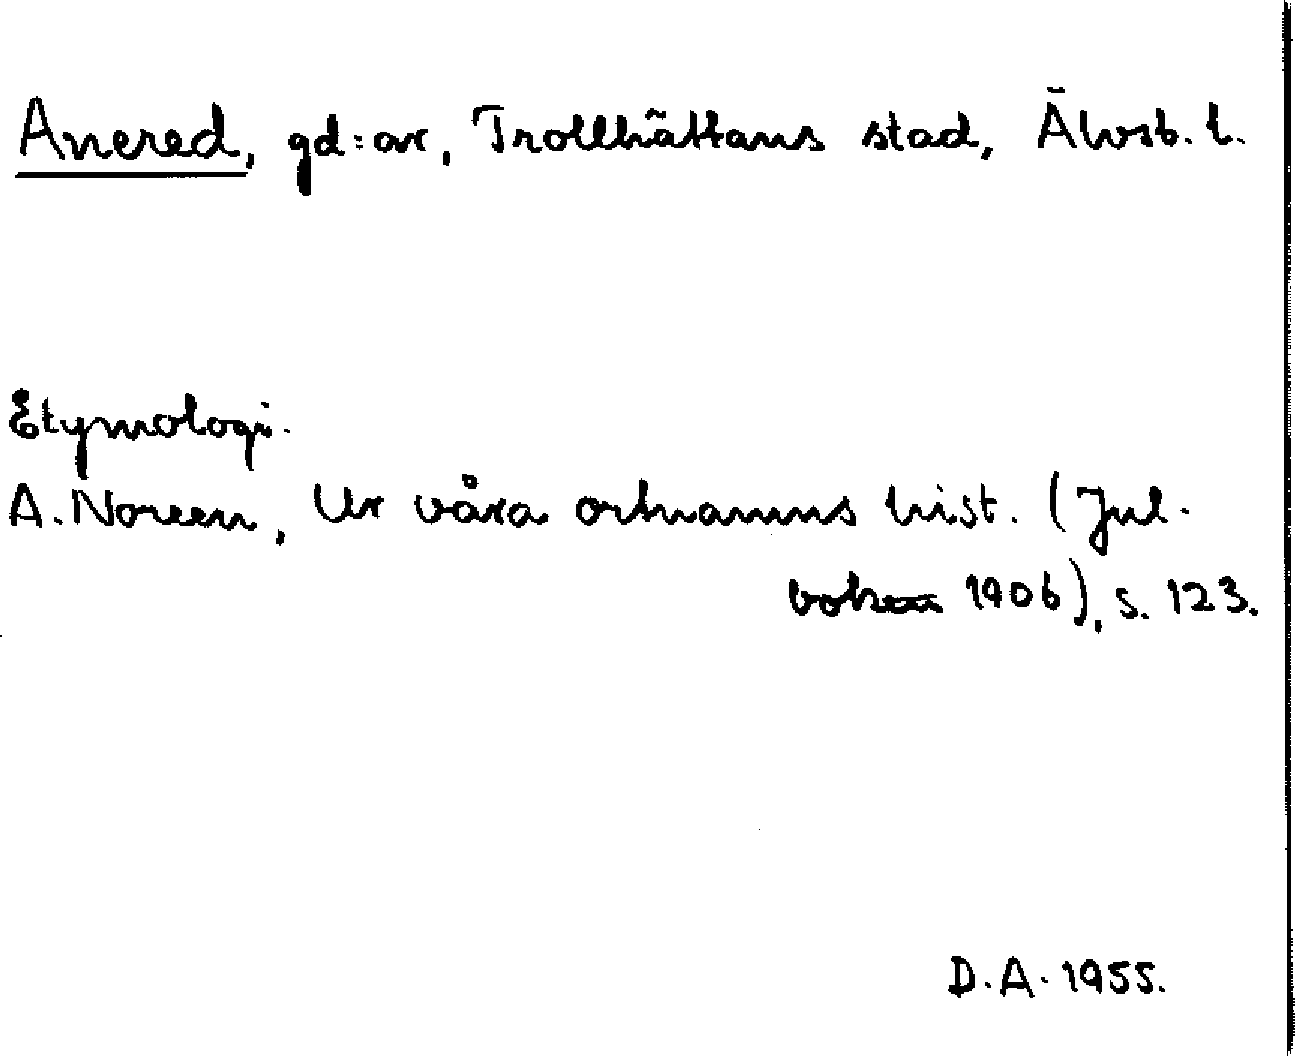 Anered, gd:ar, Trollhättans stad, Älvsb. l.
Etymologi.
A. Noreen, Ur våra ortnamns hist. (Jul-
boken 1906), s. 123.
D.A. 1955.